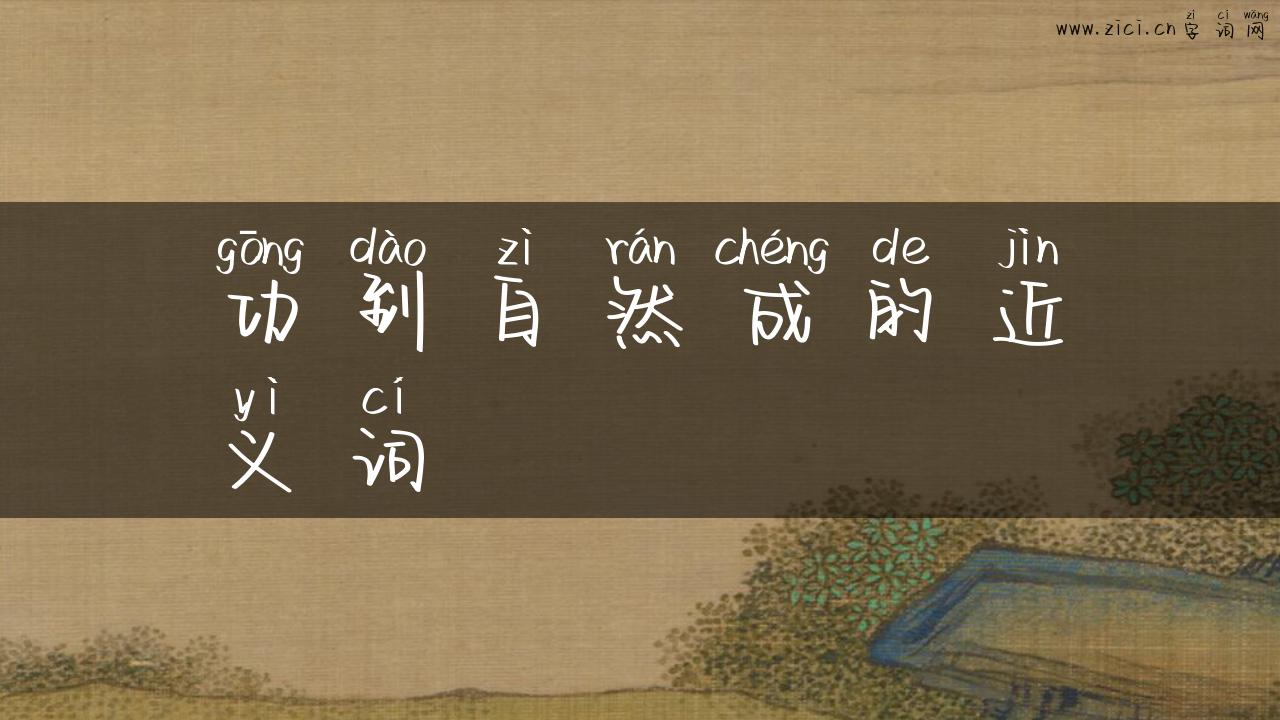 zì cí wǎng
www.zici.cn 字 词 网
gōng dào zì rán chéng de jìn
功 到 自 然 成 的 近
yì cí
义 词